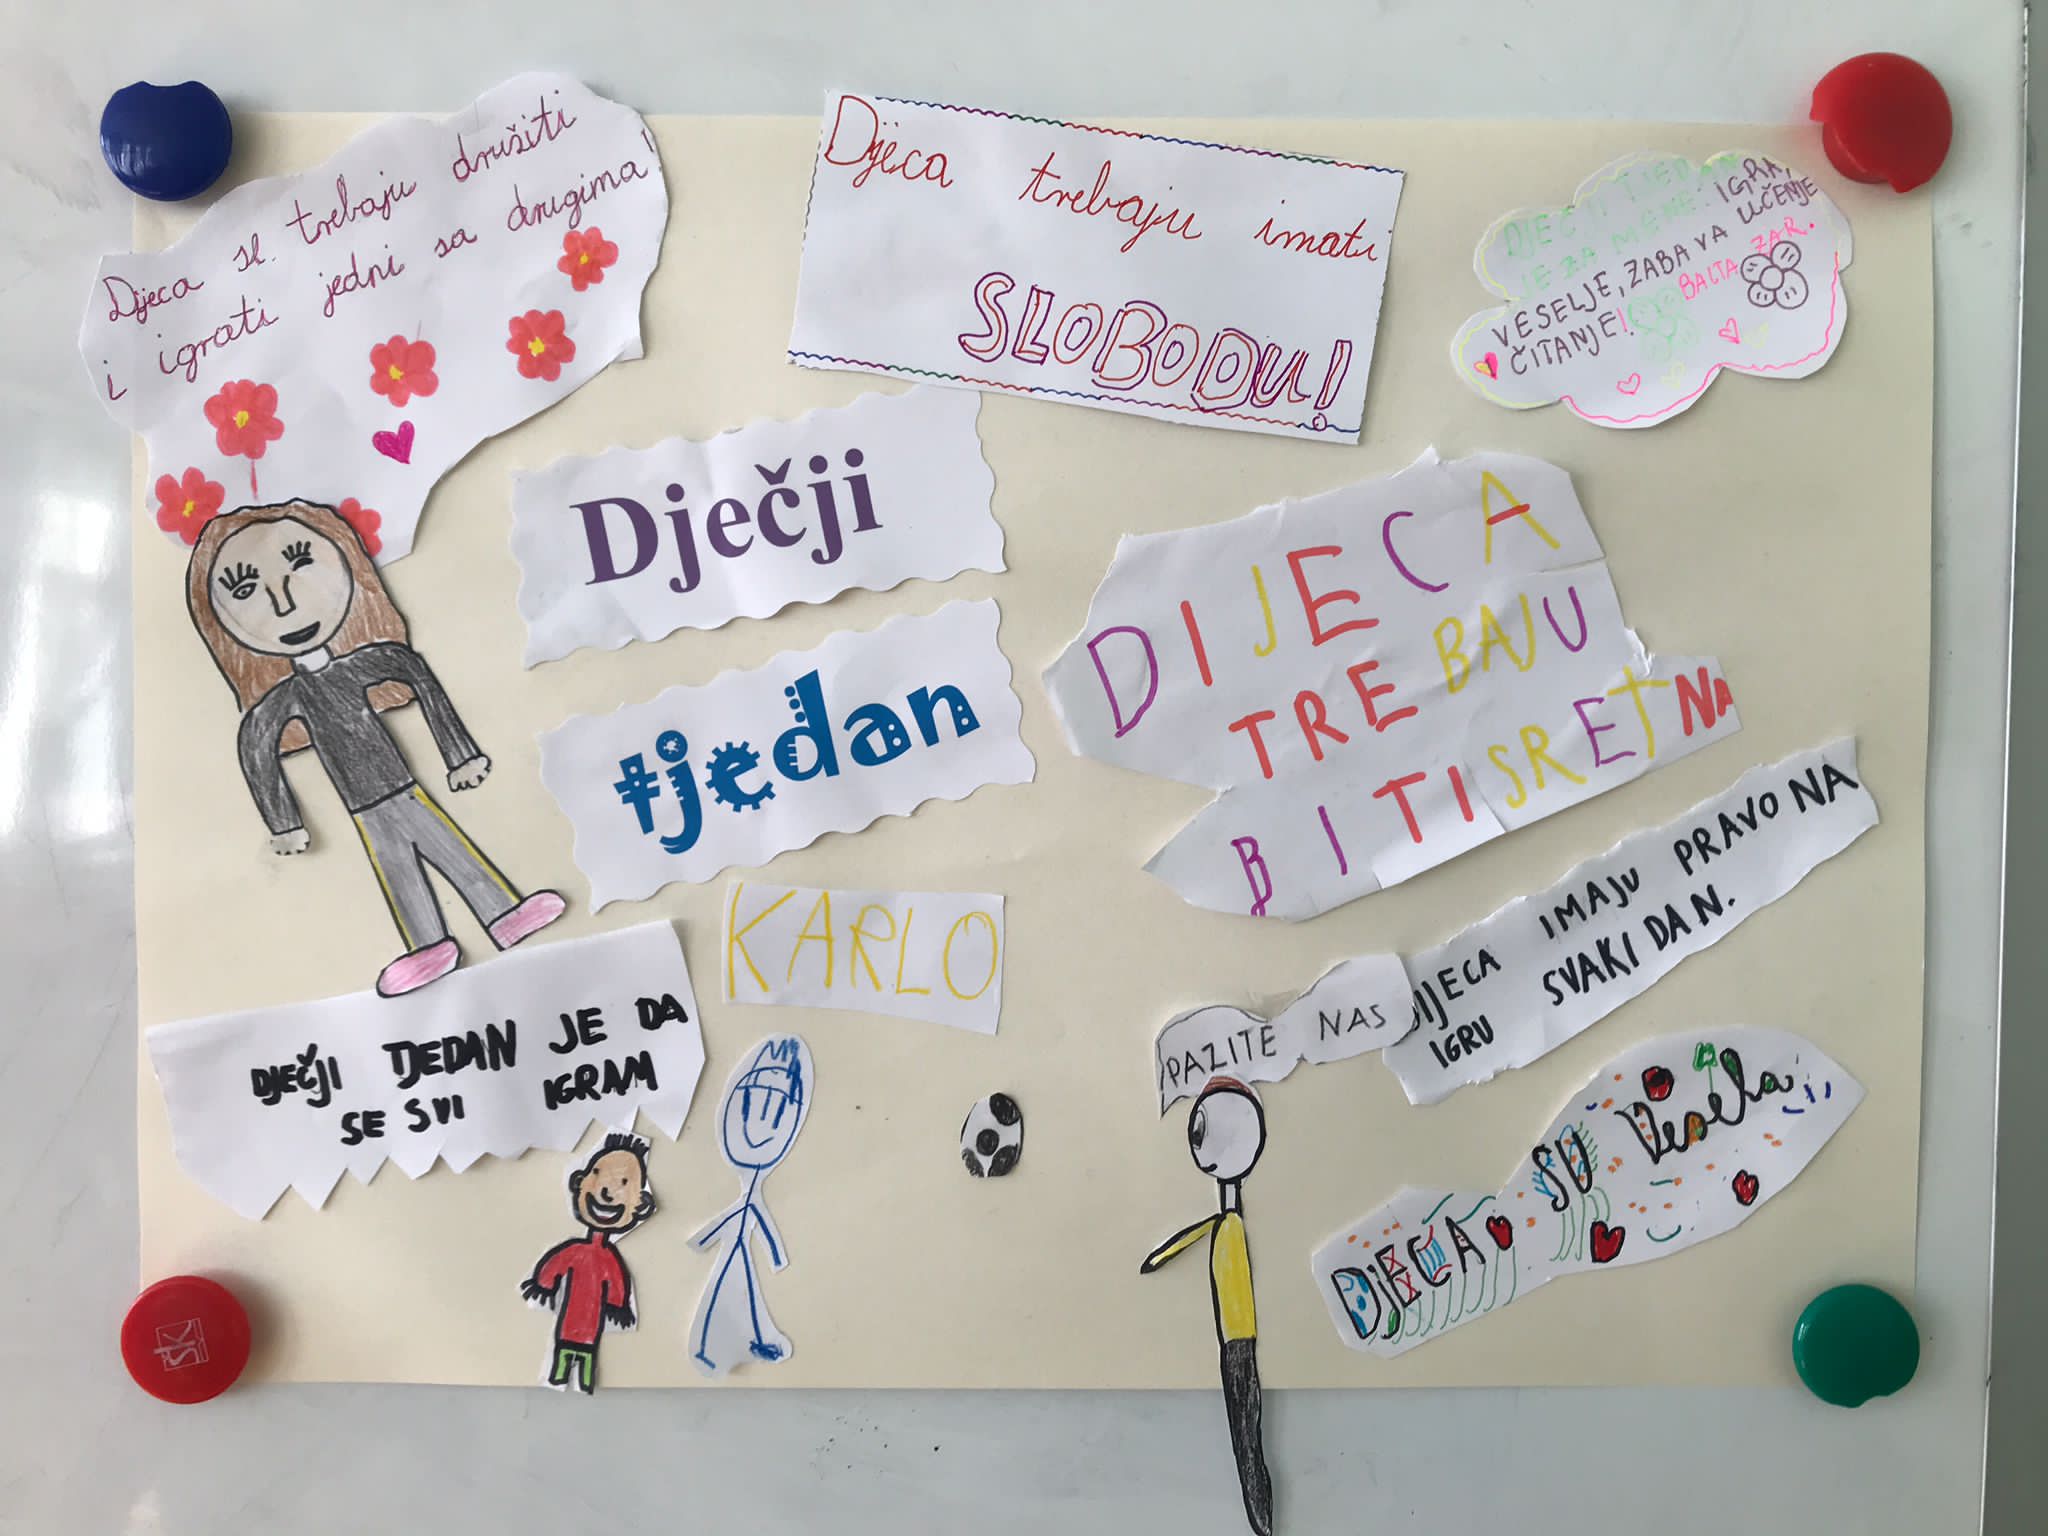 Dijeca se trebaju družiti
i igrati jedni sa drugima!
Djeca trebaju imati
SLOBODU!
DJEČJI TJEDAN
JE ZA MENE: IGRA,
VESELJE, ZABAVA UČENJE
ČITANJE!
BALTAZAR.
Dječji
tjedan
DIJECA
TREBAJU
BITI SRETNA
KARLO
DIJECA IMAJU PRAVO NA
IGRU SVAKI DAN.
PAZITE NAS
DJEČJI TJEDAN JE DA
SE SVI IGRAM
DJECA SU Vesela